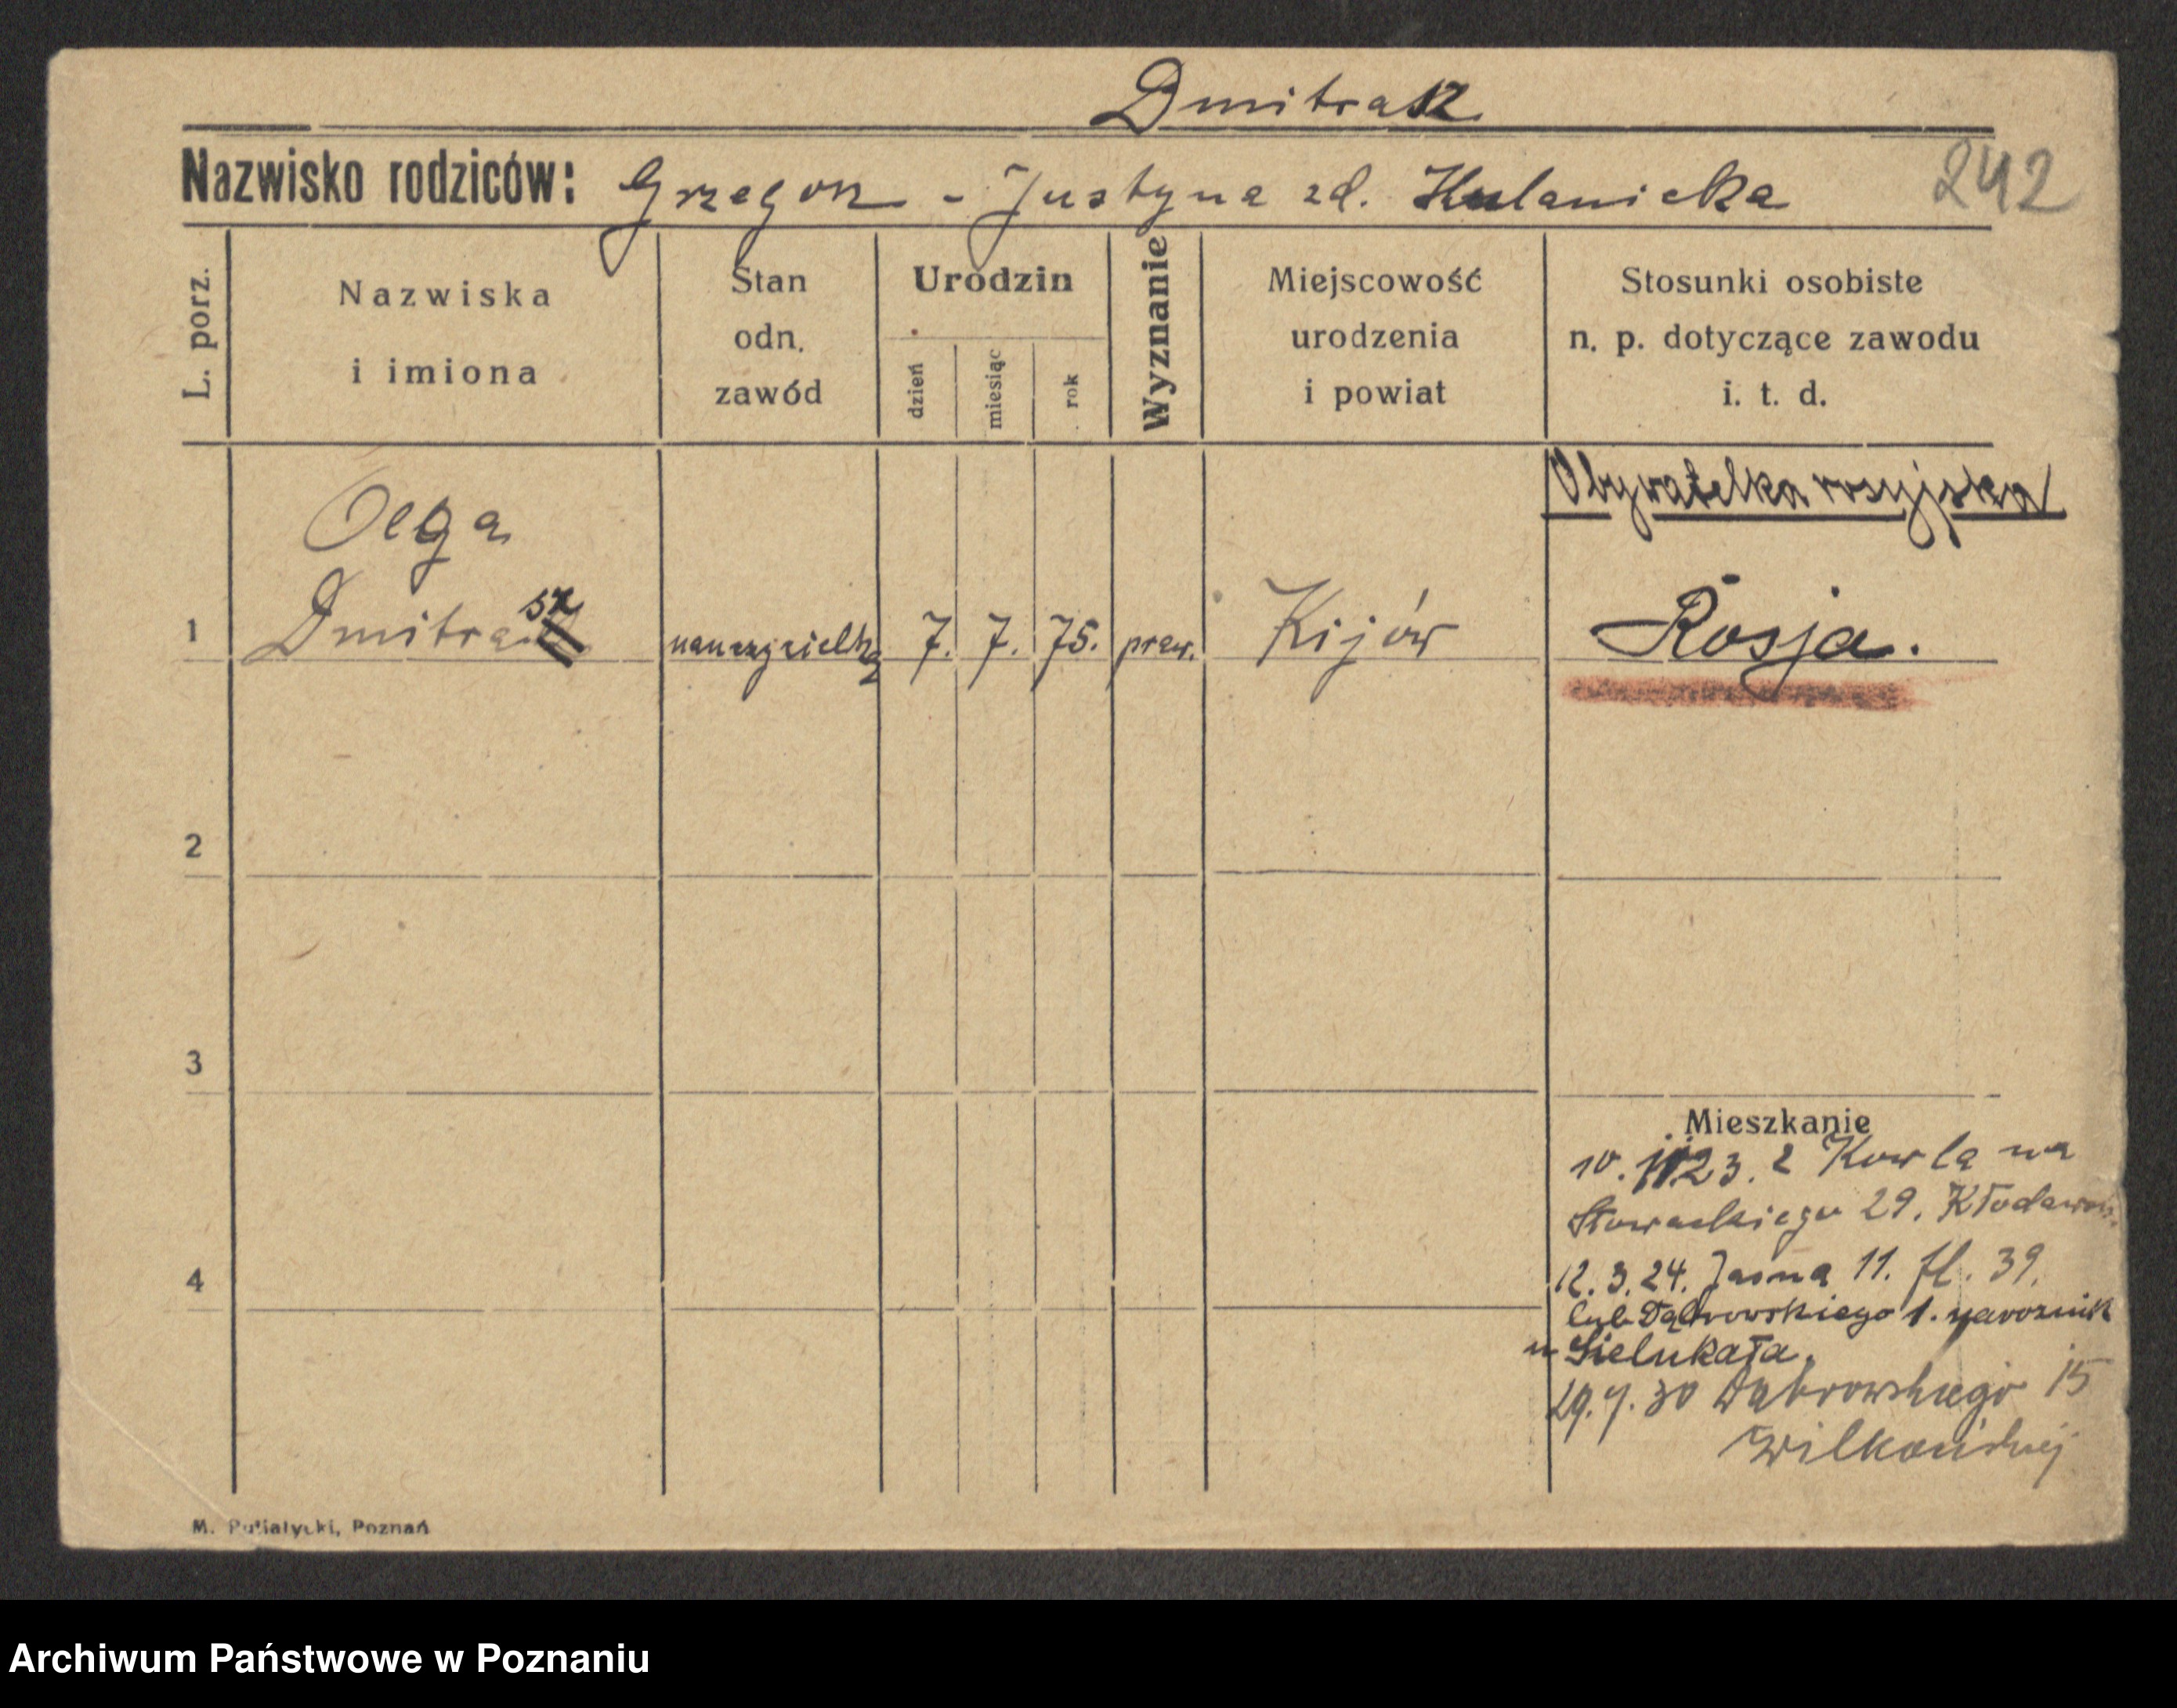 Dmitrasz
Nazwisko rodziców: Grzegorz - Justyna zd. Kulanicka
242
L. porz.
Nazwiska
i imiona
Stan
odn.
zawód
Urodzin
dzień
miesiąc
rok
Wyznanie
Miejscowość
urodzenia
i powiat
Stosunki osobiste
n. p. dotyczące zawodu
i. t. d.
Obywatelka rosyjska
1
Olga
Dmitrasz
nauczycielka
7. 7. 75.
praw.
Kijów
Rosja.
2
3
4
Mieszkanie
10. 23. z Kowla na
Słowackiego 29.
12. 3. 24. Jasna 11. fl. 39.
lub Dąbrowskiego 1. narożnik
u Sielukała.
29. 7. 30 Dąbrowskiego 15
Wilkońskiej
M. Putiatycki, Poznań
Archiwum Państwowe w Poznaniu